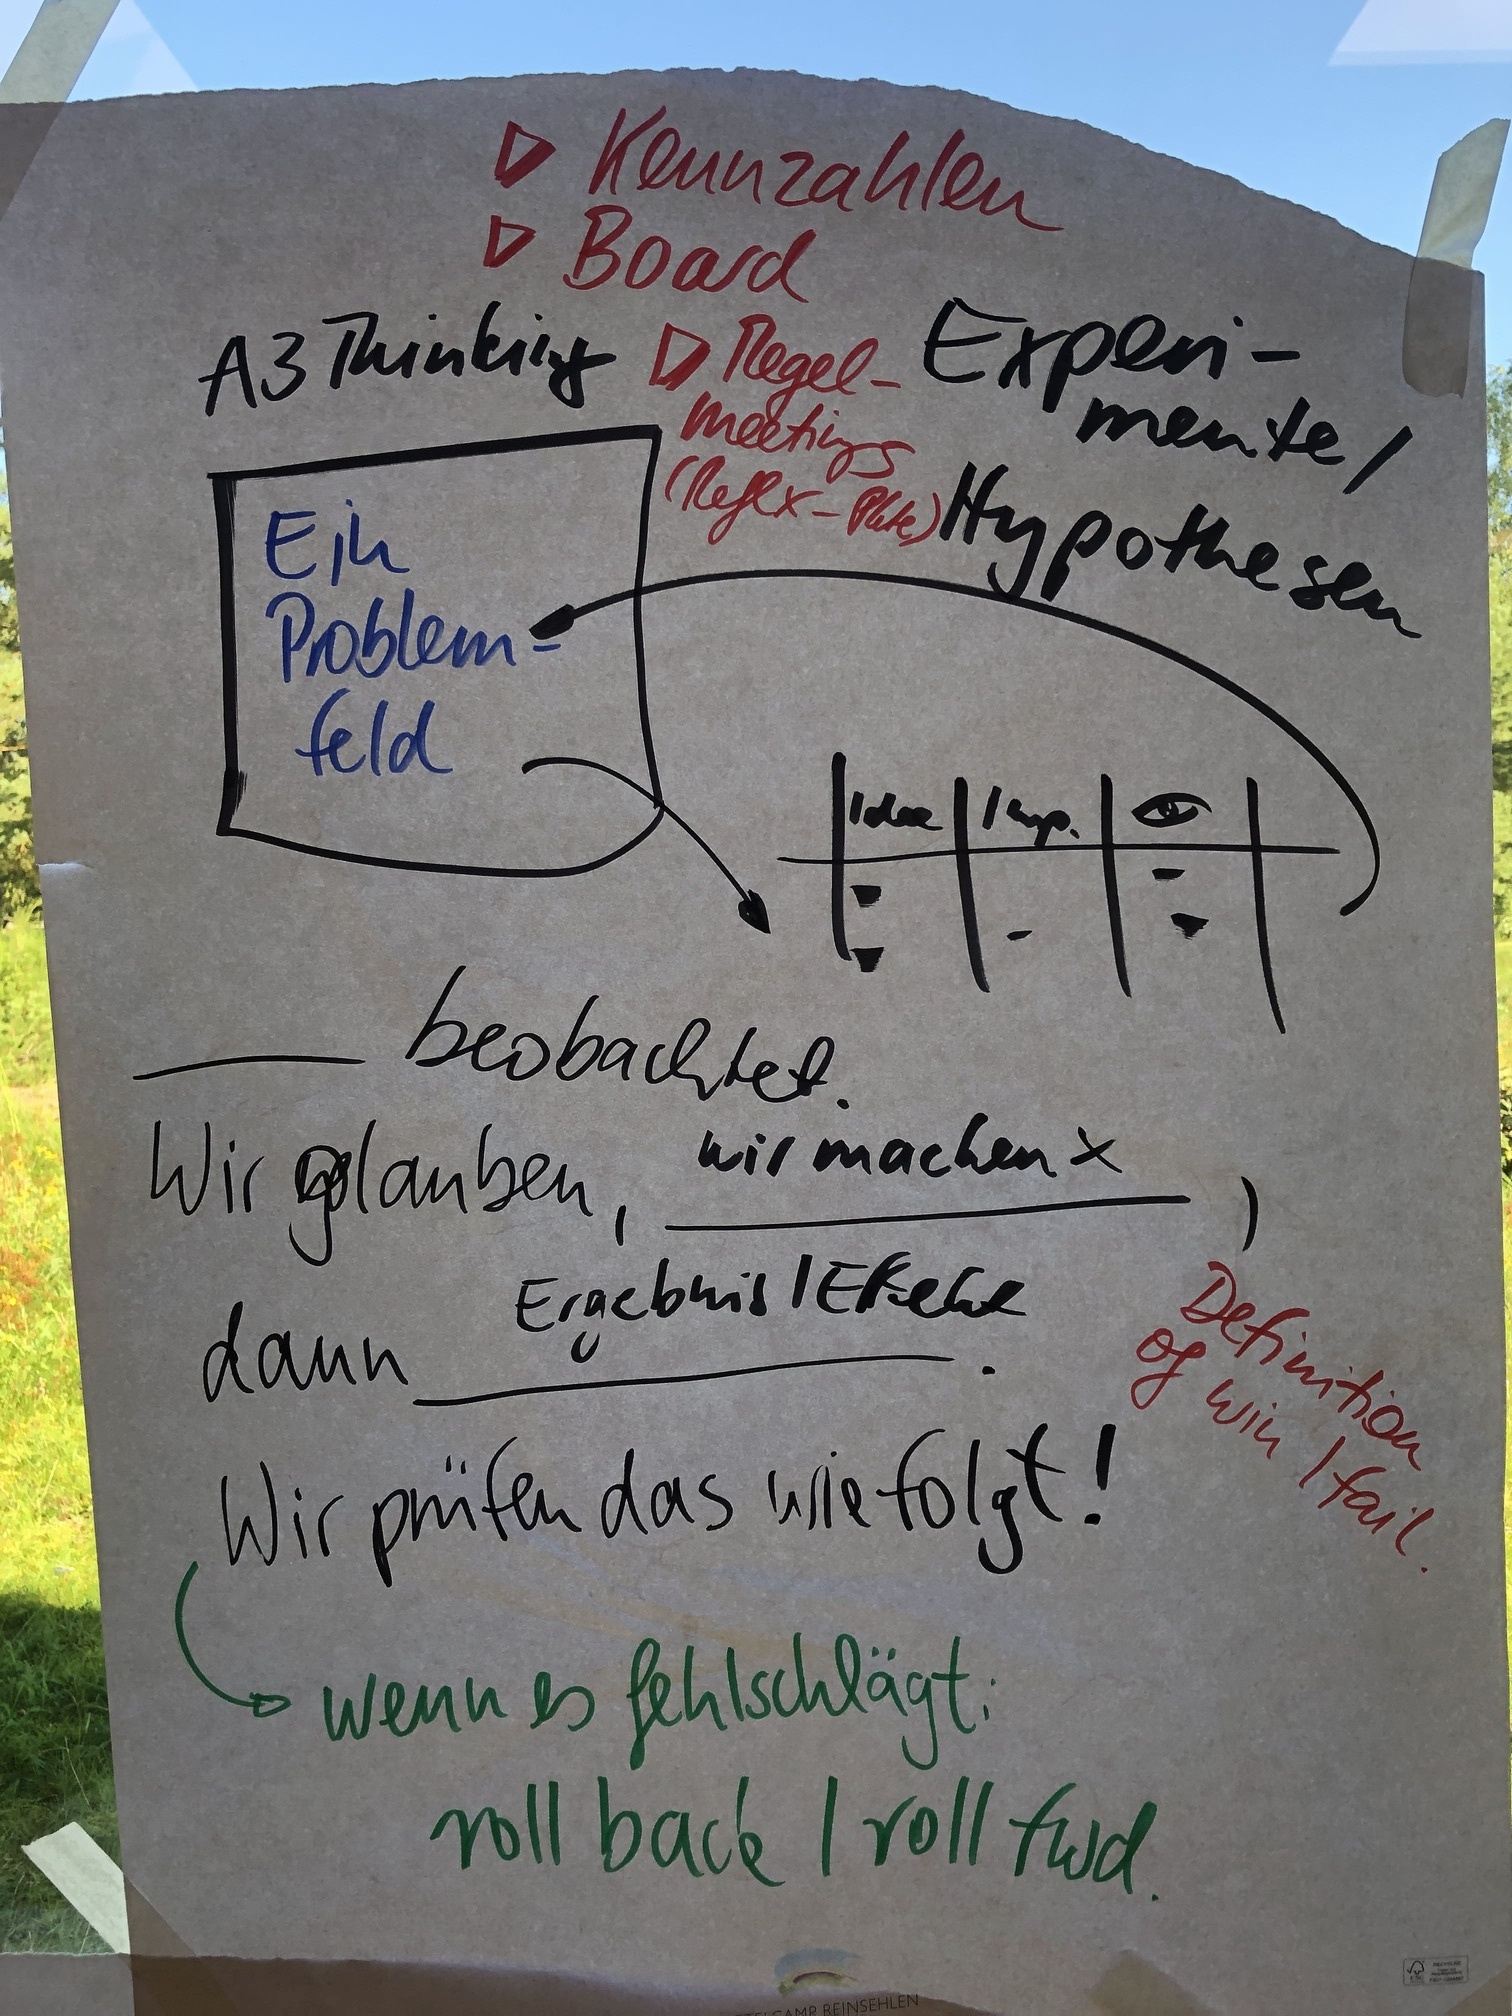 Kennzahlen
Board
A3 Thinking
Regel-
meetings
Experi-
mente/
Hypothesen
Ein
Problem-
feld
Idee | Imp.
___ beobachtet.
Wir glauben, wir machen x ,
dann Ergebnis / Effekt .
Definition
of win / fail.
Wir prüfen das wie folgt!
wenn es fehlschlägt:
roll back / roll fwd.
CAMP REINSEHLEN